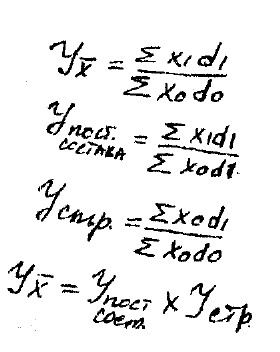 Yx̄ = Σ x₁d₁ / Σ x₀d₀
Yпост. состава = Σ x₁d₁ / Σ x₀d₁.
Yстр. = Σ x₀d₁ / Σ x₀d₀
Yx̄ = Yпост сост. x Yстр.